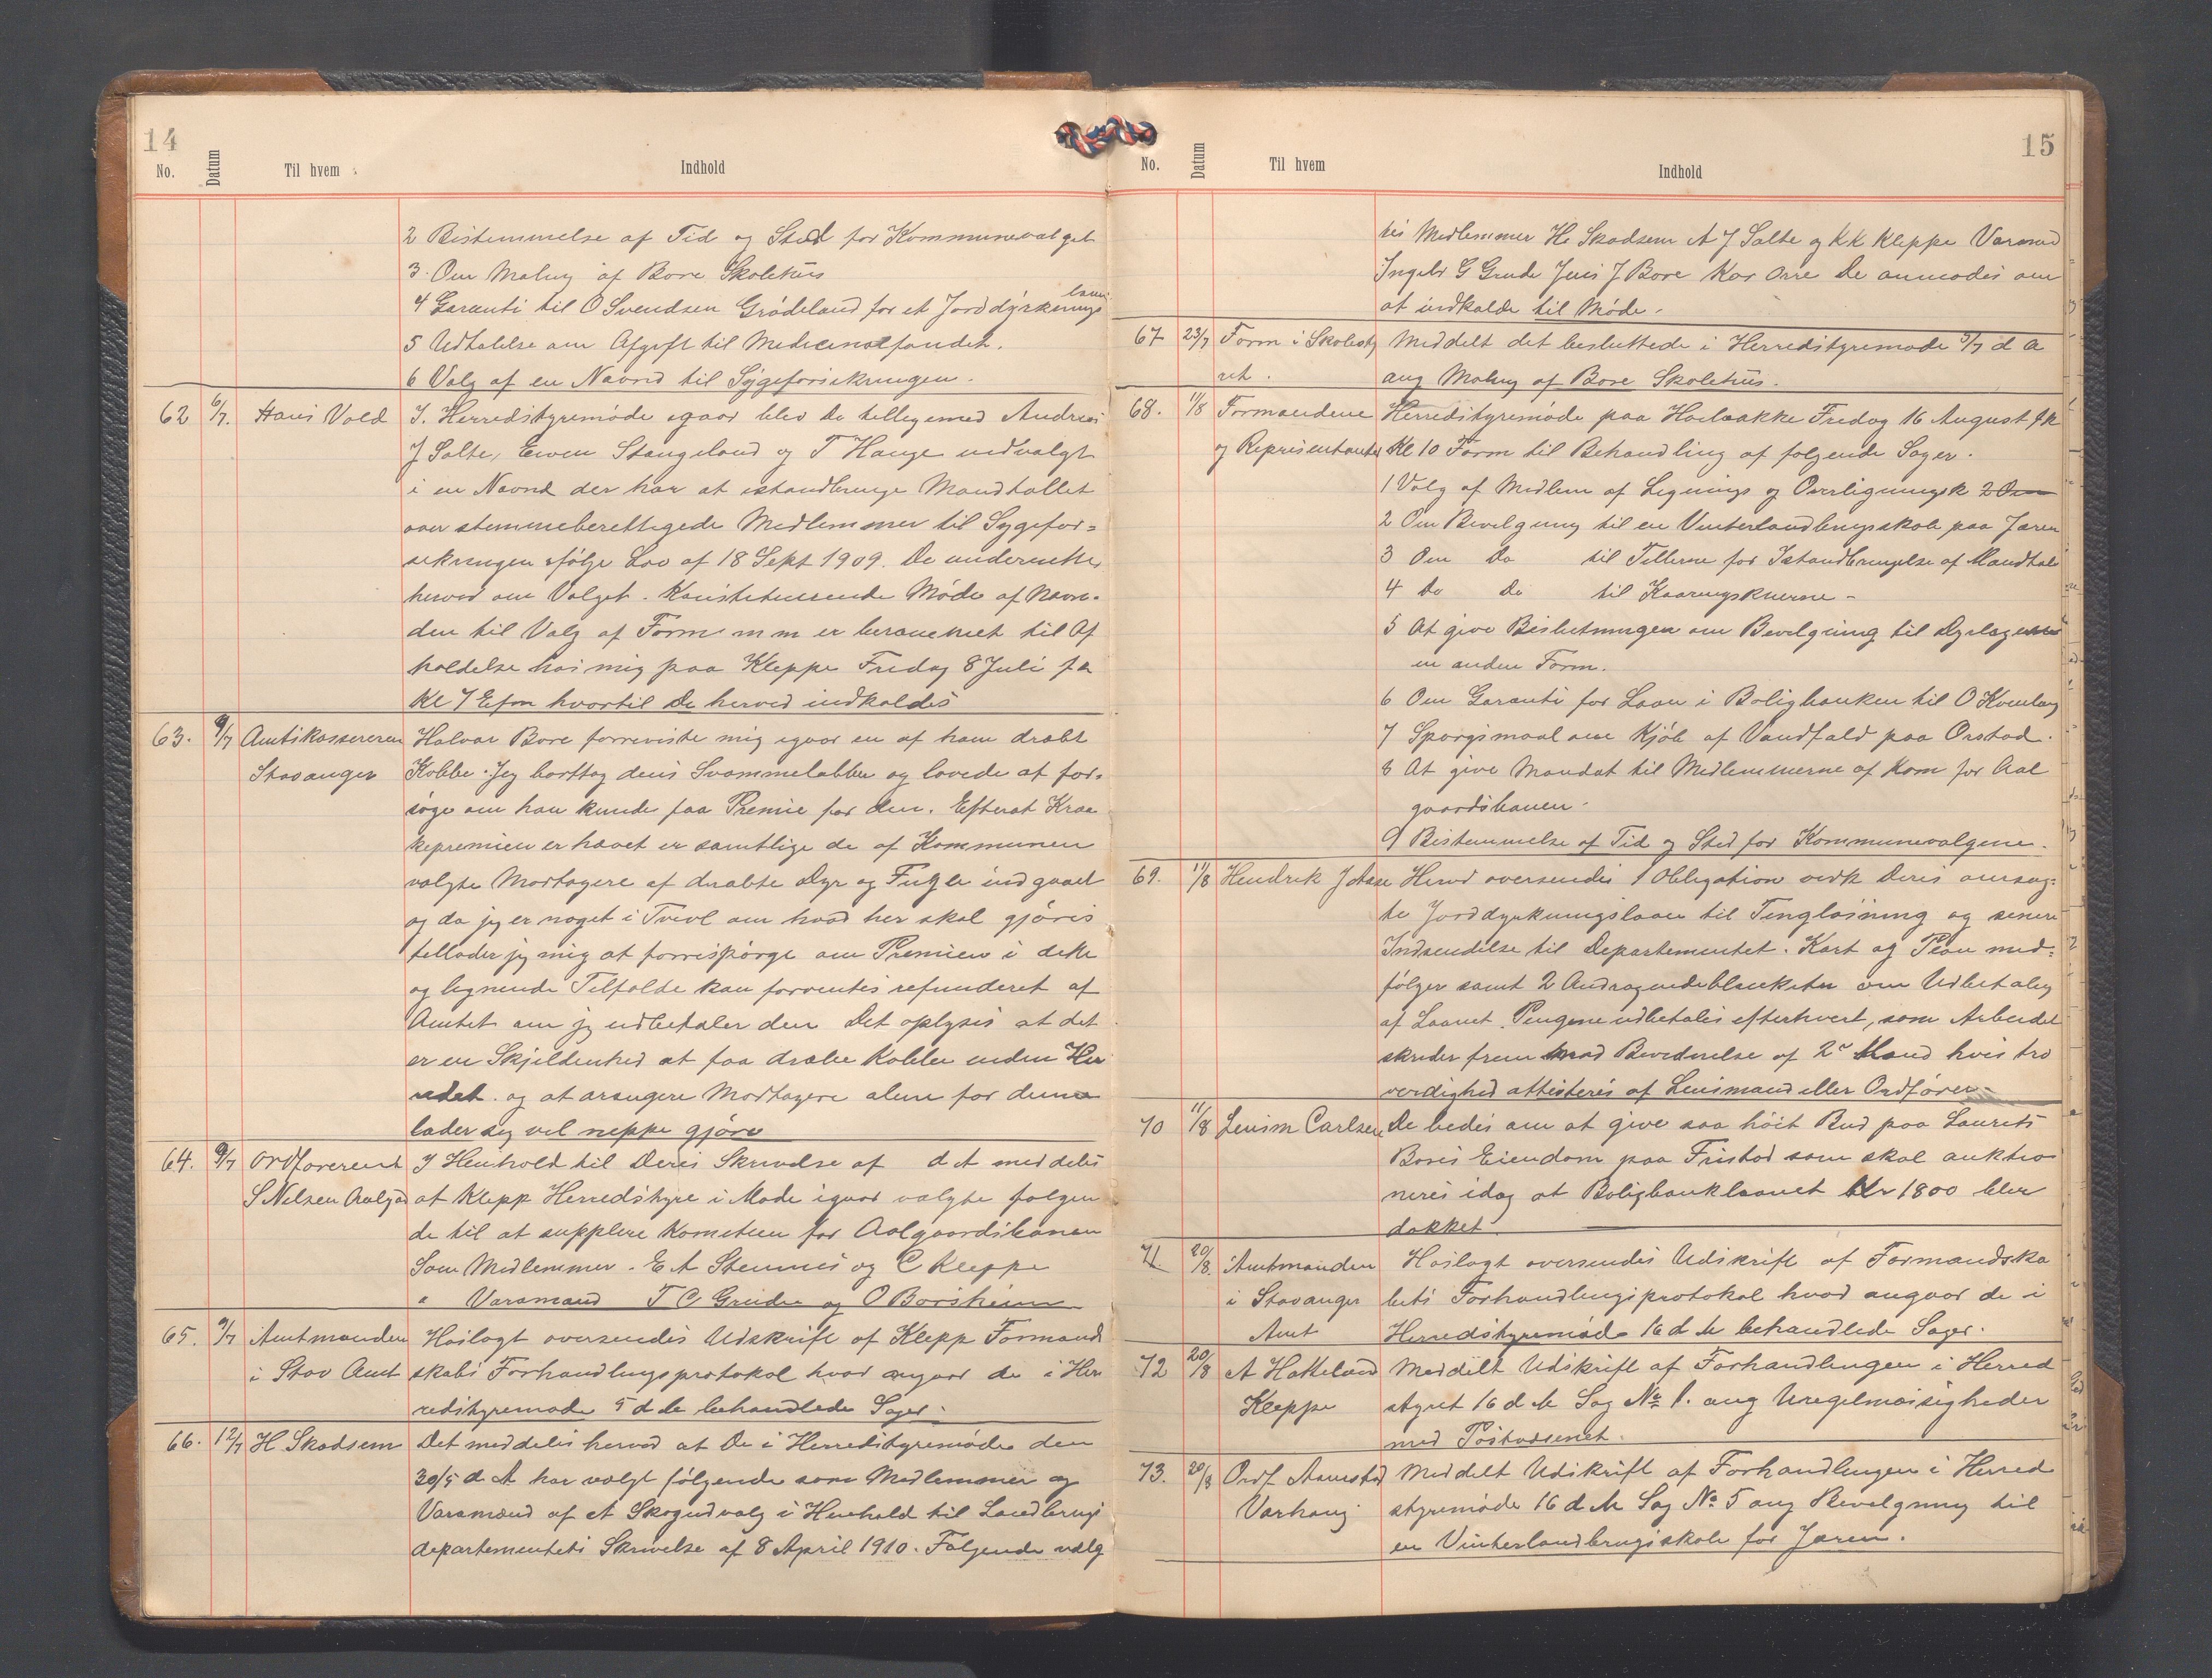 14
No. Datum Til hvem Indhold
2 Bestemmelse af Tid og Sted for Kommunevalget
3. Om Maling af Bore Skolehus
4 Garanti til O Svendsen Grødeland for et Jorddyrknings laan
5 Udtalelse om Afgift til Medicinalfondet.
6 Valg af en Navnd til Sygeforsikringen.
62 6/7. Hans Vold I. Herredstyremøde igaar blev De tilligemed Andreas
J Salte, Ewen Stangeland og T Hauge udvalgt
i en Navnd der har at istandbringe Mandtallet
over stemmeberettigede Medlemmer til Sygefor=
sikringen ifølge Lov af 18 Sept 1909. De underrettes
herved om Valget. Konstituerende Møde af Navn-
den til Valg af Form m m er berammet til Af
holdelse hos mig paa Kleppe Fredag 8 Juli f a
Kl 7 Efm hvortil De herved indkaldes
63. 9/7 Amtskassereren Halvar Bore foreviste mig igaar en af ham dræbt
Stavanger Kobbe. Jeg borttog dens Svømmelabber og lovede at for-
søge om han kunde faa Premie for den. Efterat Kraa
kepremien er hævet er samtlige de af Kommunen
valgte Modtagere af dræbte Dyr og Fugle indgaaet
og da jeg er noget i Tvivl om hvad her skal gjøres
tillader jeg mig at forrespørge om Premien i dette
og lignende Tilfælde kan forventes refunderet af
Amtet om jeg udbetaler den Det oplyses at det
er en Skjeldenhed at faa dræbe Kobber inden Her
redet. og at arangere Modtagere alene for denne
lader sig vel neppe gjøre
64. 9/7 Ordføreren S Nelsen Aalgd I Henhold til Deres Skrivelse af d A meddeles
at Klepp Herredstyre i Møde igaar valgte følgen
de til at supplere Kometeen for Aalgaardsbanen
Som Medlemmer. E A Stennes og C Kleppe
" Varamænd T C Grude og O Borsheim
65. 9/7 Amtmanden Hoslagt oversendes Udskrift af Klepp Formand
i Stav Amt skabs Forhandlingsprotokol hvad angaar de i Her
redstyremøde 5 d M behandlede Sager.
66. 12/7 H. Skadsem Det meddeles herved at De i Herredstyremøde den
30/5 d A har valgt følgende som Medlemmer og
Varamænd af et Skogudvalg i Henhold til Landbrugs
departementets Skrivelse af 8 April 1910. Følgende valg
15
No. Datum Til hvem Indhold
tes Medlemmer H. Skadsem A J Salte og K K Kleppe Varamænd
Ingebr G Grude Jens J Bore Kar Orre De anmodes om
at indkalde til Møde.
67 23/7 Form i Skolesty Meddelt det besluttede i Herredstyremøde 5/7 d A
ret. ang Maling af Bore Skolehus.
68. 1/8 Formændene Herredstyremøde paa Hoelbakke Fredag 16 August fk
og Representanter Kl 10 Form til Behandling af følgende Sager.
1 Valg af Medlem af Lignings og Overligningsk 2 Om
2 Om Bevilgning til en Vinterlandbrugsskole paa Jæren
3 Om Do til Tellerne for Istandbringelse af Mandtal
4 Do Do til Kaaringsknerne -
5 At give Beslutningen om Bevilgning til Dyrlægerne
en anden Form.
6 Om Garanti for Laan i Boligbanken til O Kvernberg
7 Spørgsmaal om Kjøb af Vandfald paa Orstad.
8 At give Mandat til Medlemmerne af Kom for Aal
gaardsbanen.
9 Bestemmelse af Tid og Sted for Kommunevalgene.
69. 11/8 Hendrik J Aase Herved oversendes 1 Obligation vedk Deres ansøg-
te Jorddyrkningslaan til Tinglæsning og senere
Indsendelse til Departementet. Kart og Plan med-
følger samt 2 Andragendeblanketter om Udbetaling
af Laanet. Pengene udbetales efterhvert, som Arbeidet
skrider frem mod Bevidnelse af 2de Mænd hvis tro
verdighed attesteres af Lensmand eller Ordfører.
70 11/8 Lensm Carlsen De bedes om at give saa høit Bud paa Laurits
Bores Eiendom paa Fristad som skal auktio
neres idag at Boligbanklaanet Kr 1800 bliver
dækket
71. 20/8. Amtmanden Hoslagt oversendes Udskrift af Formandska
i Stavanger bets Forhandlingsprotokol hvad angaar de i
Amt Herredstyremøde 16 d M behandlede Sager.
72 20/8 A Hatteland Meddelt Udskrift af Forhandlingen i Herred
Kleppe styret 16 d M Sag No 1. ang Uregelmæssigheder
med Postvæsenet.
73. 20/8 Ordf Aanestad Meddelt Udskrift af Forhandlingen i Herred
Varhaug styremøde 16 d M Sag No 5 ang Bevilgning til
en Vinterlandbrugsskole for Jæren.